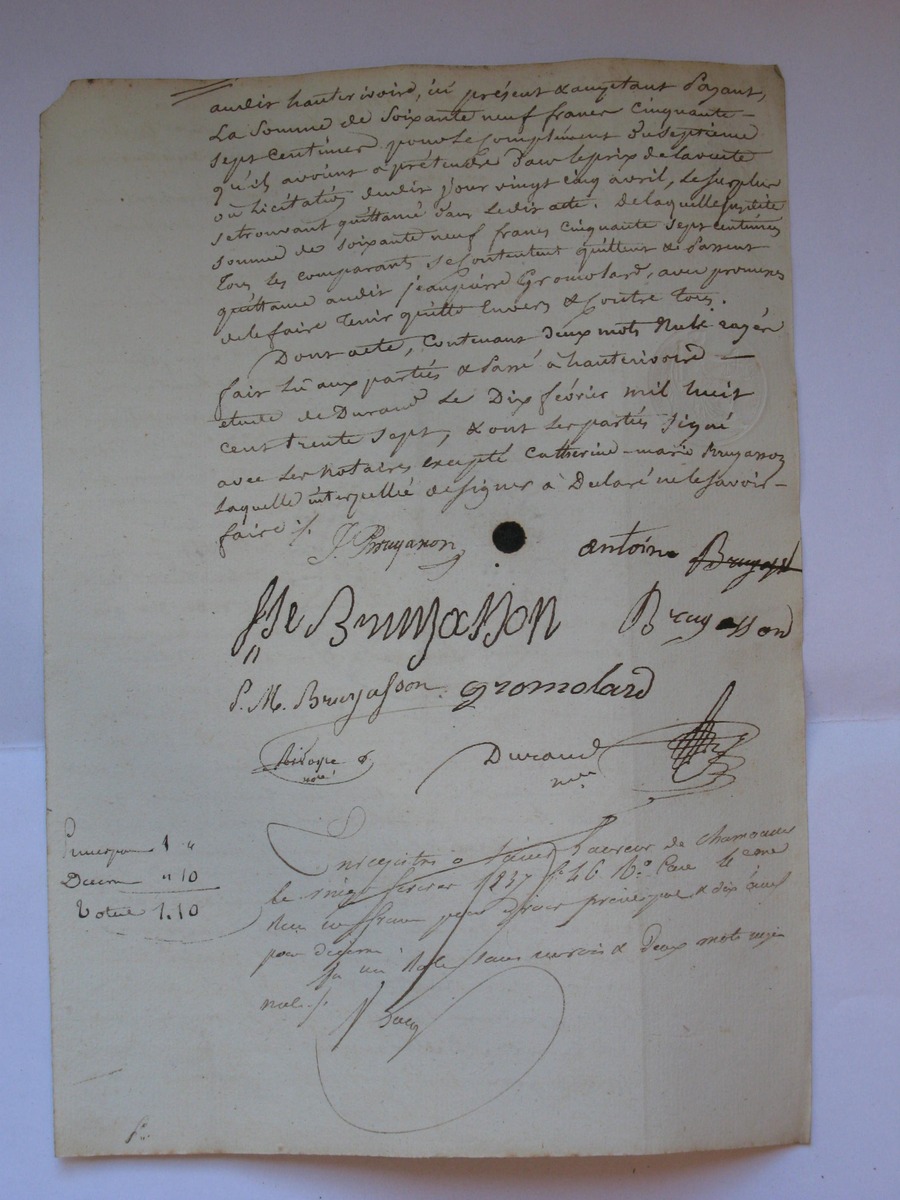 audit hauterivoire, ici présent & acceptant payant,
La Somme de Soixante neuf francs Cinquante-
sept Centimes pour le Complément du septième
qu'ils avoient à prétendre dans le prix de la vente
ou licitation dudit jour vingt cinq avril, le surplus
se trouvant quittancé dans ledit acte. De laquelle susdite
somme de soixante neuf francs cinquante sept centimes
Tous les comparants se contentent quittent & passent
quittance audit jean pierre Gromolard, avec promesses
de le faire Tenir quitte Envers & Contre Tous.
Dont acte, Contenant deux mots Nuls rayés
fait lu aux parties & Passé à hauterivoire -
étude de Durand Le Dix février mil huit
cent trente sept, & ont les parties Signé
avec les Notaires excepté Catherine-marie Bruyasson
laquelle interpellée de signer à Déclaré ne le savoir-
faire ./.
J Bruyasson antoine Bruyass
Bruyasson Bruyasson
P. M. Bruyasson gromolard
Durand
nre
Enregistré à
le février 1837 f° 46 R° Case 4
un franc pour droit principal & dix
pour décime.
un Role sans renvois & Deux mots rayés
nuls ./.
Principal 1 "
Décime " 10
Total 1.10